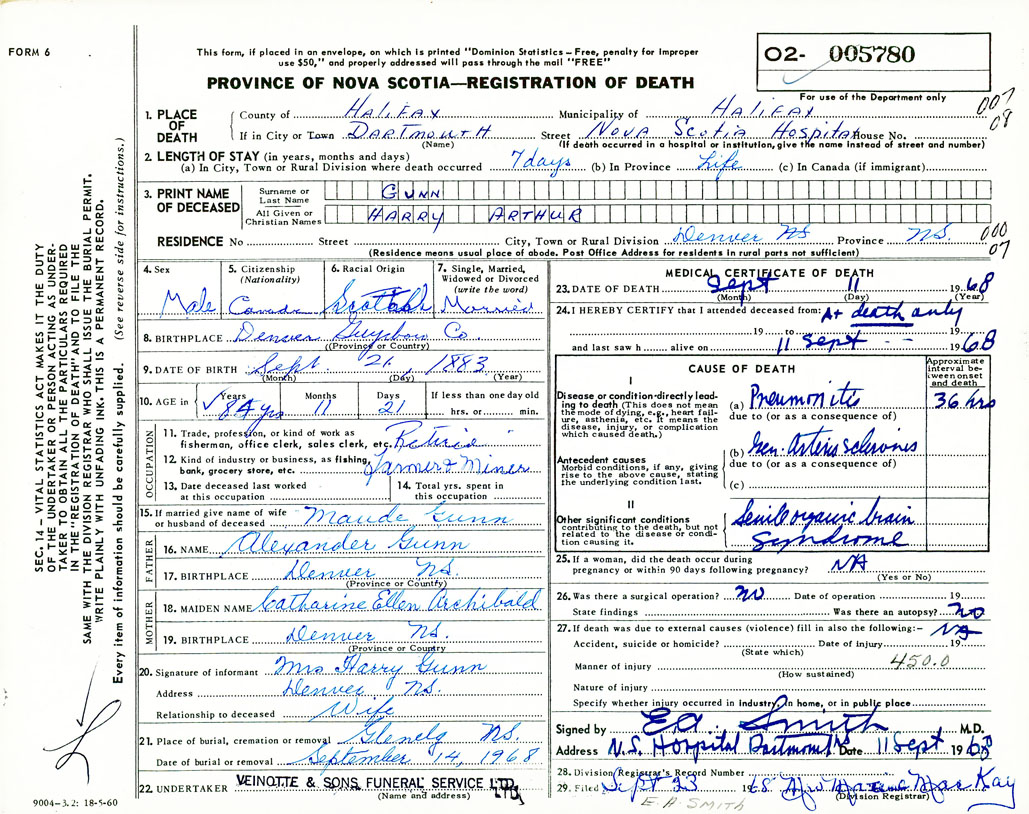 FORM 6
This form, if placed in an envelope, on which is printed "Dominion Statistics – Free, penalty for improper
use $50," and properly addressed will pass through the mail "FREE"
PROVINCE OF NOVA SCOTIA—REGISTRATION OF DEATH
02- 005780
For use of the Department only
007
08
1. PLACE OF DEATH
County of HALIFAX Municipality of HALIFAX
If in City or Town DARTMOUTH Street NOVA SCOTIA HOSPITAL House No.
(Name) (If death occurred in a hospital or institution, give the name instead of street and number)
2. LENGTH OF STAY (in years, months and days)
(a) In City, Town or Rural Division where death occurred 7 days (b) In Province Life (c) In Canada (if immigrant)
3. PRINT NAME OF DECEASED
Surname or Last Name GUNN
All Given or Christian Names HARRY ARTHUR
RESIDENCE No Street City, Town or Rural Division Denver NS Province NS.
000
07
(Residence means usual place of abode. Post Office Address for residents in rural parts not sufficient)
4. Sex
Male
5. Citizenship
(Nationality)
Canada
6. Racial Origin
7. Single, Married,
Widowed or Divorced
(write the word)
Married
8. BIRTHPLACE Denver Guysboro Co.
(Province or Country)
9. DATE OF BIRTH Sept 21, 1883
(Month) (Day) (Year)
10. AGE in
Years
84 yrs
Months
11
Days
21
If less than one day old
hrs. or min.
OCCUPATION
11. Trade, profession, or kind of work as
fisherman, office clerk, sales clerk, etc. Retired
12. Kind of industry or business, as fishing,
bank, grocery store, etc. farmer & Miner
13. Date deceased last worked
at this occupation
14. Total yrs. spent in
this occupation
15. If married give name of wife
or husband of deceased Maude Gunn
FATHER
16. NAME Alexander Gunn
17. BIRTHPLACE Denver NS.
(Province or Country)
MOTHER
18. MAIDEN NAME Catharine Ellen Archibald
19. BIRTHPLACE Denver NS.
(Province or Country)
20. Signature of informant Mrs Harry Gunn
Address Denver NS.
Relationship to deceased Wife
21. Place of burial, cremation or removal Glenelg NS.
Date of burial or removal September 14, 1968
22. UNDERTAKER VEINOTTE & SONS FUNERAL SERVICE LTD.
(Name and address)
MEDICAL CERTIFICATE OF DEATH
23. DATE OF DEATH Sept 11 1968
(Month) (Day) (Year)
24. I HEREBY CERTIFY that I attended deceased from: At death only
19 to 19
and last saw h alive on 11 Sept 1968
CAUSE OF DEATH
Approximate
interval be-
tween onset
and death
I
Disease or condition directly lead-
ing to death (This does not mean
the mode of dying, e.g., heart fail-
ure, asthenia, etc. It means the
disease, injury, or complication
which caused death.)
(a) Pneumonitis 36 hrs
due to (or as a consequence of)
Antecedent causes
Morbid conditions, if any, giving
rise to the above cause, stating
the underlying condition last.
(b) Gen. Arteriosclerosis
due to (or as a consequence of)
(c)
II
Other significant conditions
contributing to the death, but not
related to the disease or condi-
tion causing it.
Senile organic brain
Syndrome
25. If a woman, did the death occur during
pregnancy or within 90 days following pregnancy? NA
(Yes or No)
26. Was there a surgical operation? NO Date of operation 19
State findings Was there an autopsy? NO
27. If death was due to external causes (violence) fill in also the following:– NA
Accident, suicide or homicide? Date of injury 19
(State which)
450.0
Manner of injury
(How sustained)
Nature of injury
Specify whether injury occurred in industry, in home, or in public place
Signed by E.A. Smith M.D.
Address N.S. Hospital Dartmouth Date 11 Sept 1968
28. Division Registrar's Record Number
29. Filed Sept 23 1968 MacKay
(Division Registrar)
E. A. SMITH
9004-3.2: 18-5-60
SEC. 14 – VITAL STATISTICS ACT MAKES IT THE DUTY
OF THE UNDERTAKER OR PERSON ACTING AS UNDER-
TAKER TO OBTAIN ALL THE PARTICULARS REQUIRED
IN THE "REGISTRATION OF DEATH" AND TO FILE THE
SAME WITH THE DIVISION REGISTRAR WHO SHALL ISSUE THE BURIAL PERMIT.
WRITE PLAINLY WITH UNFADING INK. THIS IS A PERMANENT RECORD.
Every item of information should be carefully supplied. (See reverse side for instructions.)